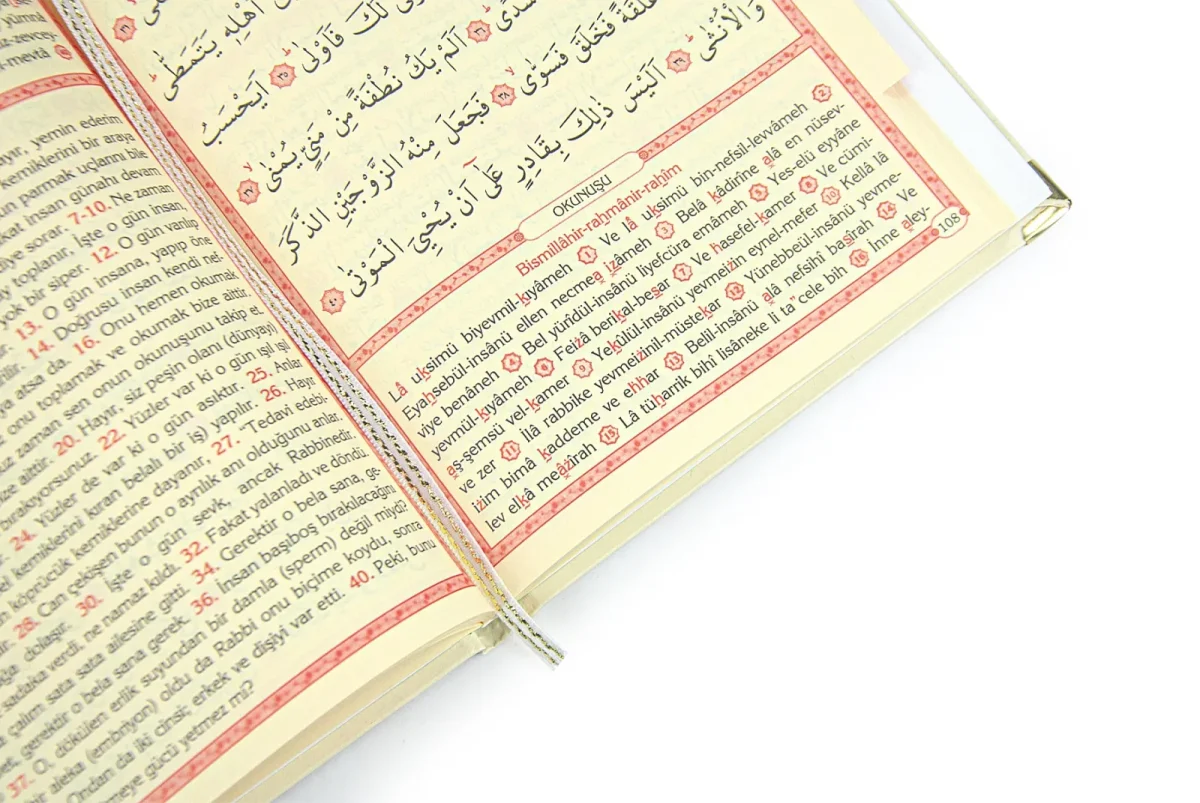 yürmâ
ik-zevcey-
l-mevtâ
ayır, yemin ederim
kemiklerini bir araya
ün parmak uçlarını bile
akat insan günahı devam
diye sorar. 7-10. Ne zaman
ay toplanır, İşte o gün insan,
yok bir siper. 12. O gün varılıp
r. 13. O gün insana, yapıp öne
irilir. 14. Doğrusu insan kendi nef-
ya atsa da. 16. Onu hemen okumak
z onu toplamak ve okumak bize aittir.
uz zaman sen onun okunuşunu takip et.
ize aittir. 20. Hayır, siz peşin olanı (dünyayı)
bırakıyorsunuz. 22. Yüzler var ki o gün ışıl ışıl
24. Yüzler de var ki o gün asıktır. 25. Anlar
el kemiklerini kıran belalı bir iş) yapılır. 26. Hayır
n köprücük kemiklerine dayanır, 27. "Tedavi edebir
ir. 28. Can çekişen bunun o ayrılık anı olduğunu anlar.
ğa dolaşır. 30. İşte o gün sevk, ancak Rabbinedir.
sadaka verdi, ne namaz kıldı. 32. Fakat yalanladı ve döndü.
a çalım sata sata ailesine gitti. 34. Gerektir o bela sana, ge-
et, gerektir o bela sana gerek. 36. İnsan başıboş bırakılacağını
37. O, dökülen erlik suyundan bir damla (sperm) değil miydi?
bir aleka (embriyon) oldu da Rabbi onu biçime koydu, sonra
Ondan da iki cinsi; erkek ve dişiyi var etti. 40. Peki, bunu
meye gücü yetmez mi?
اَهْلِه۪ يَتَمَطّٰىۜ ﴿٣٣﴾
لَكَ فَاَوْلٰىۜ ﴿٣٥﴾ اَيَحْسَبُ
سُدًىۜ ﴿٣٦﴾ اَلَمْ يَكُ نُطْفَةً مِنْ مَنِيٍّ يُمْنٰىۙ ﴿٣٧﴾
عَلَقَةً فَخَلَقَ فَسَوّٰىۙ ﴿٣٨﴾ فَجَعَلَ مِنْهُ الزَّوْجَيْنِ الذَّكَرَ
وَالْاُنْثٰىۜ ﴿٣٩﴾ اَلَيْسَ ذٰلِكَ بِقَادِرٍ عَلٰٓى اَنْ يُحْيِيَ الْمَوْتٰى ﴿٤٠﴾
OKUNUŞU
Bismillâhir-rahmânir-rahîm
Lâ uksimü biyevmil-kıyâmeh 1 Ve lâ uksimü bin-nefsil-levvâmeh 2
Eyahsebül-insânü ellen necmea izâmeh 3 Belâ kâdirîne alâ en nüsev-
viye benâneh 4 Bel yürîdül-insânü liyefcüra emâmeh 5 Yes-elü eyyâne
yevmül-kıyâmeh 6 Feizâ berikal-besar 7 Ve hasefel-kamer 8 Ve cümi-
aş-şemsü vel-kamer 9 Yekülül-insânü yevmeizin eynel-mefer 10 Kellâ lâ
ve zer 11 İlâ rabbike yevmeizinil-müstekar 12 Yünebbeül-insânü yevme-
izim bimâ kaddeme ve ehhar 13 Belil-insânü alâ nefsihî basîrah 14 Ve
lev elkâ meâzîrah 15 Lâ tüharrik bihî lisâneke li ta"cele bih 16 İnne aley-
108